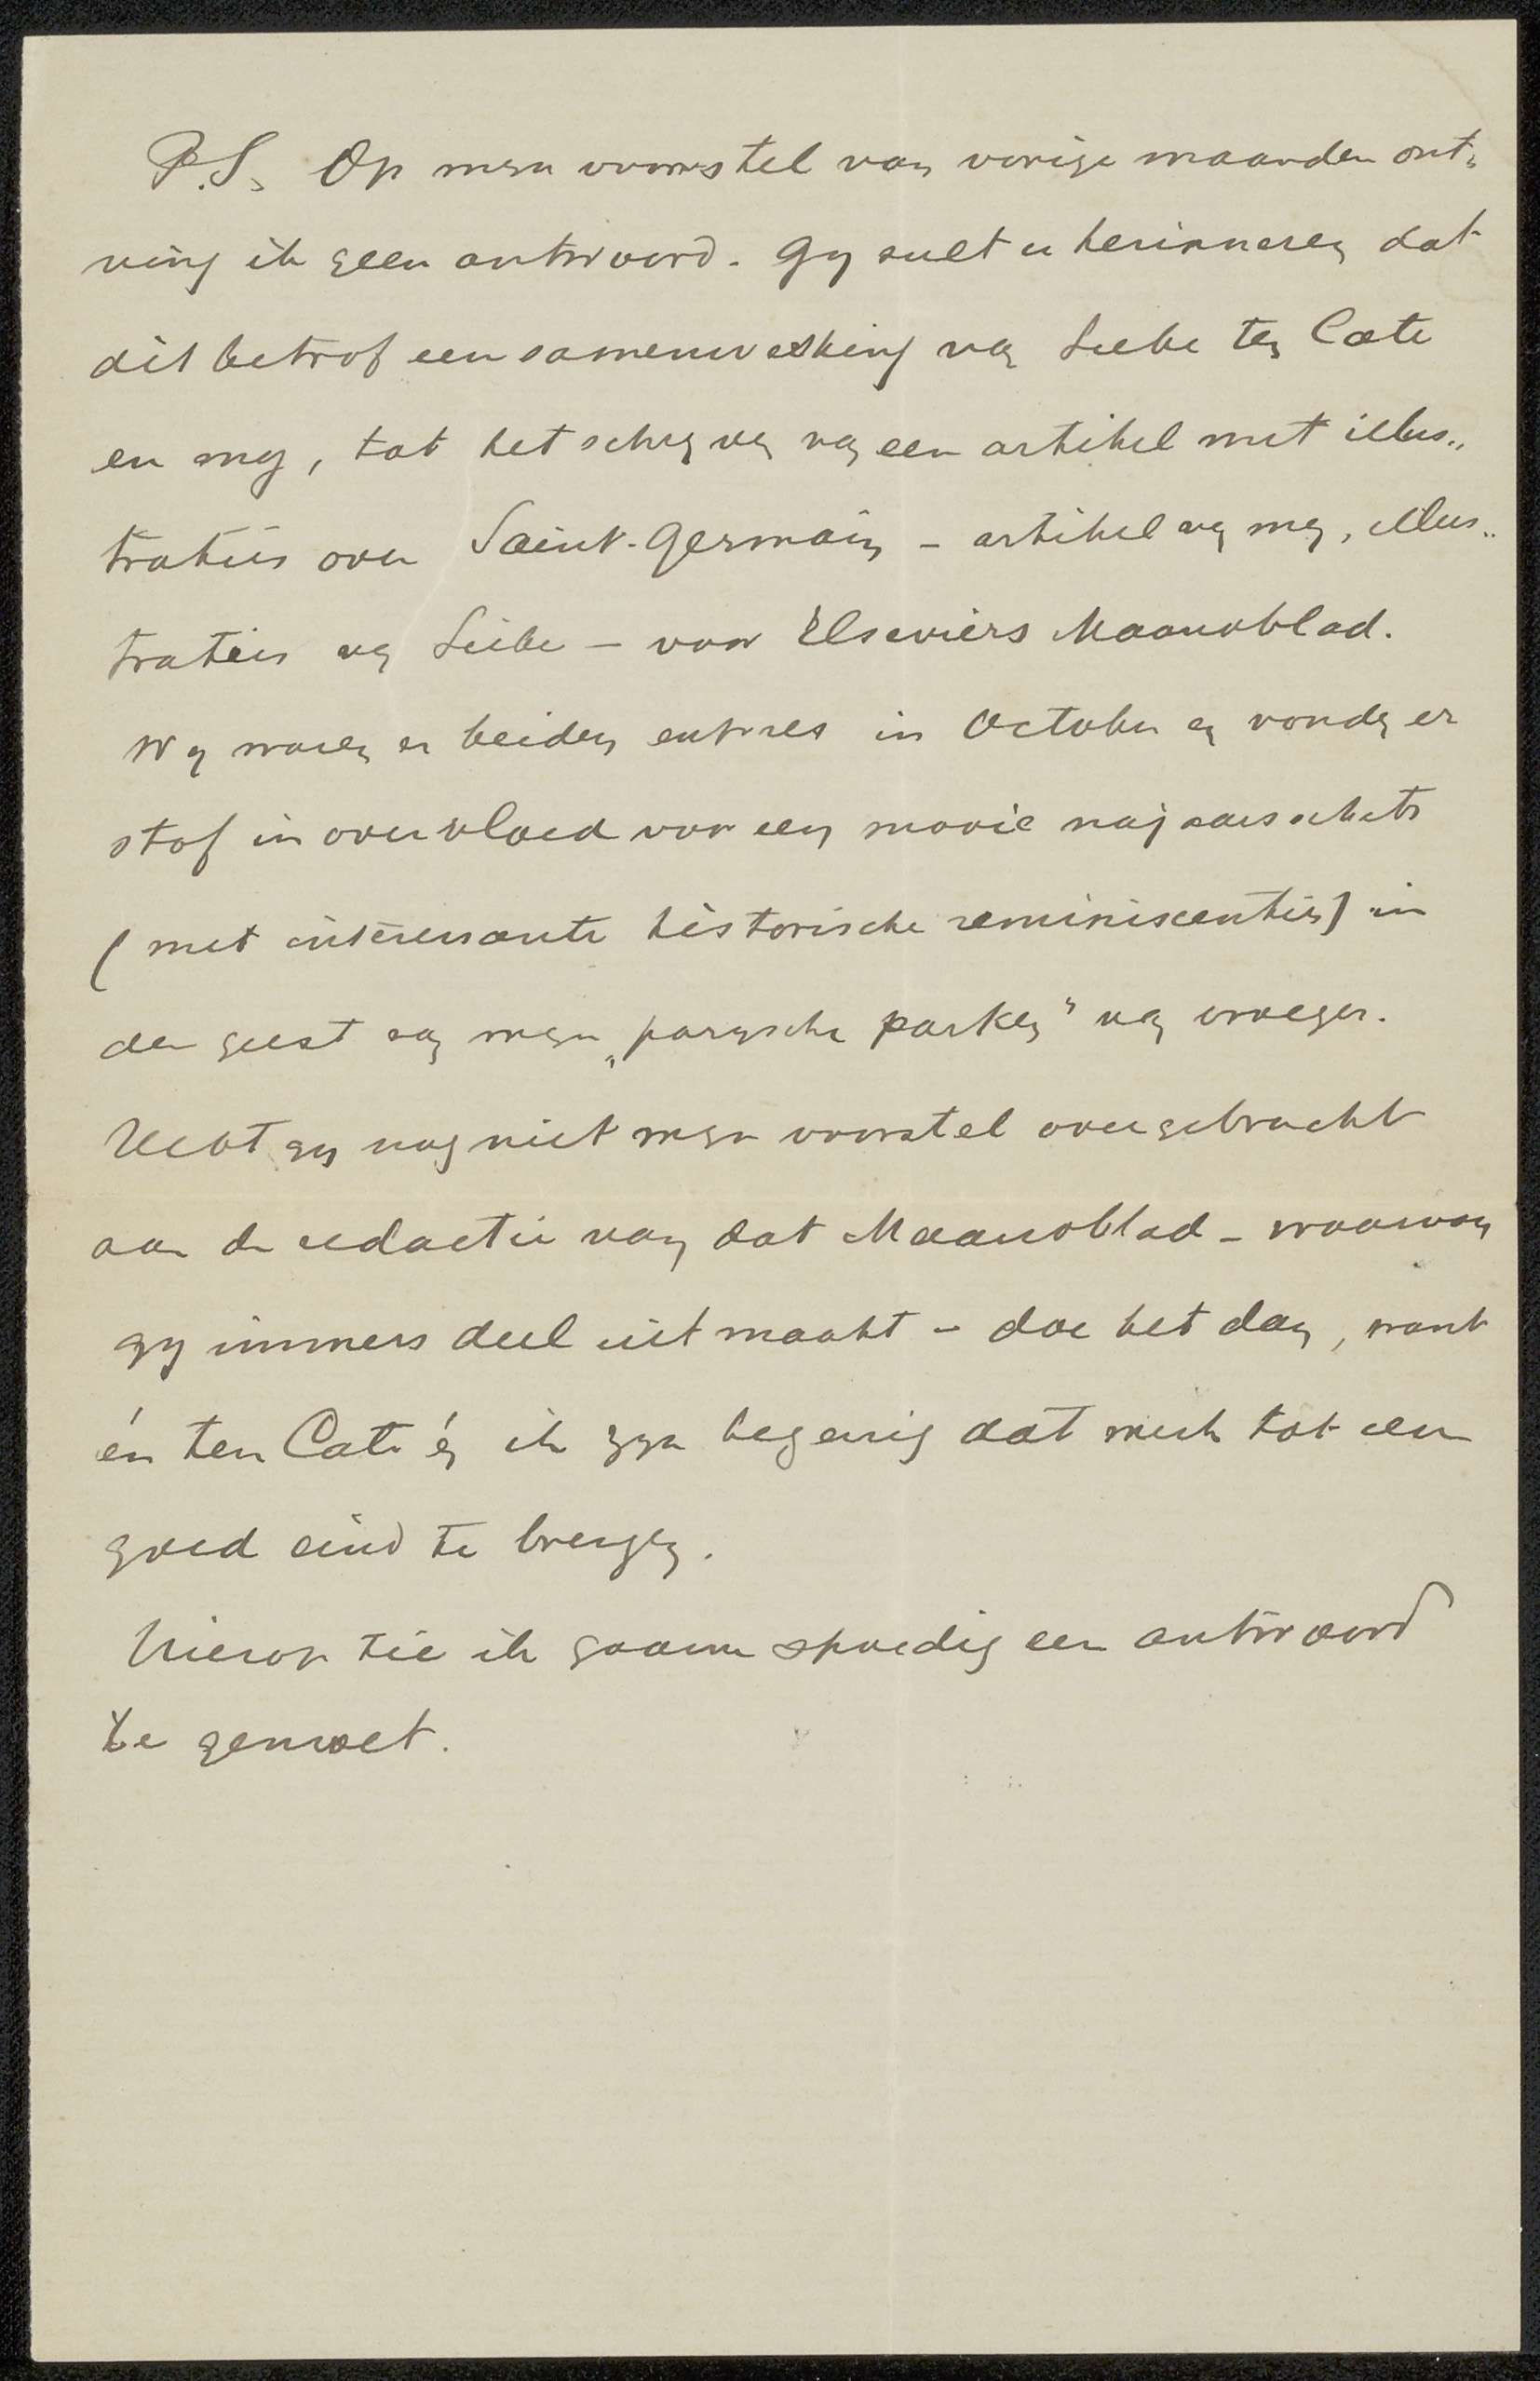 P.S. Op mijn voorstel van vorige maanden ont-
ving ik geen antwoord. Gij zult u herinneren dat
dit betrof een samenwerking van Siebe ten Cate
en mij, tot het schrijven van een artikel met illus„
traties over Saint-Germain – artikel van mij, illus„
traties van Siebe – voor Elseviers Maandblad.
Wij waren er beiden extres in October en vonden er
stof in overvloed voor een mooie najaarsschets
(met interessante historische reminiscenties) in
den geest van mijn „parijsche parken" van vroeger.
Hebt gij nog niet mijn voorstel overgebracht
aan de redactie van dat Maandblad – waarvan
gij immers deel uitmaakt – doe het dan, want
én ten Cate én ik zijn begeerig dat werk tot een
goed eind te brengen.
Hierop zie ik gaarne spoedig een antwoord
te gemoet.